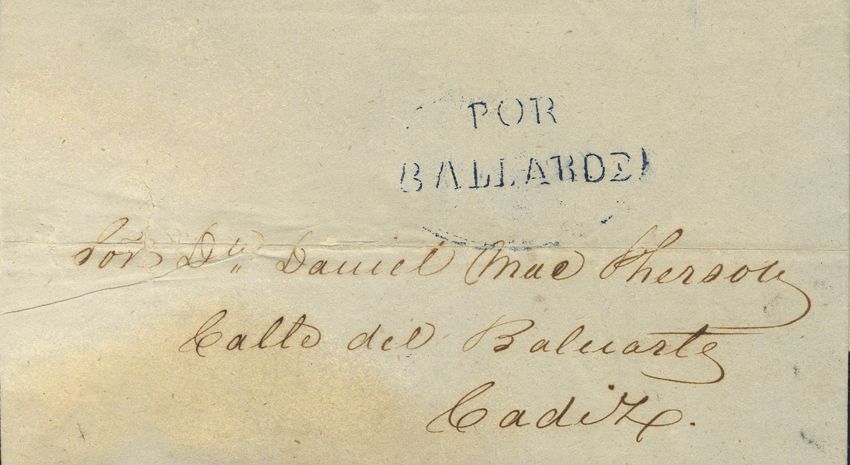 POR
BALLARDE
Sõr Dn Daniel Mac Pherson
Calle del Baluarte
Cadiz.